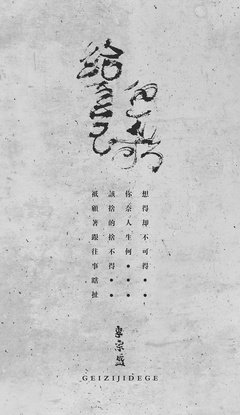 給自己
的歌
想得却不可得••
你奈人生何•••
該捨的捨不得••
祇顧著跟往事瞎扯
李宗盛
GEIZIJIDEGE